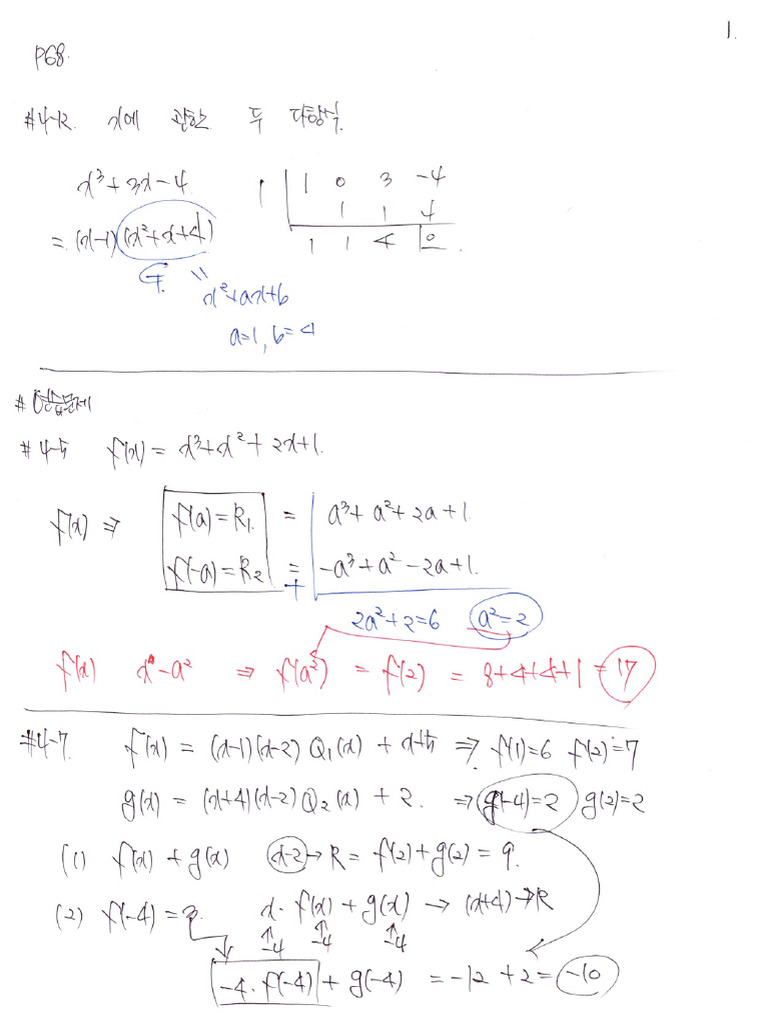 1.
P68.
#4-12. x에 관한 두 다항식.
x³+3x-4 1 | 1 0 3 -4
1 1 4
= (x-1)(x²+x+4) 1 1 4 0
G. "
x²+ax+b
a=1, b=4
# 연습문제
#4-5 f(x) = x³+x²+2x+1.
f(x) ⇒ f(a)=R₁. = a³+a²+2a+1
f(-a)=R₂ = -a³+a²-2a+1.
+
2a²+2=6 a²=2
f(x) x-a² ⇒ f(a²) = f(2) = 8+4+4+1=17
#4-7. f(x) = (x-1)(x-2)Q₁(x) + x+5 ⇒ f(1)=6 f(2)=7
g(x) = (x+4)(x-2)Q₂(x) + 2. ⇒ g(-4)=2 g(2)=2
(1) f(x)+g(x) x-2 → R = f(2)+g(2) = 9.
(2) f(-4)=3. x·f(x)+g(x) → (x+4) → R
↑ ↑ ↑
-4 -4 -4
-4·f(-4) + g(-4) = -12+2 = -10